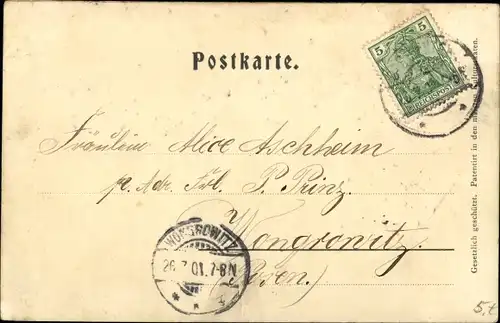 Postkarte.
5
REICHSPOST
Fräulein Alice Aschheim
p. Adr. Frl. P. Prinz.
Wongrowitz.
(Posen.)
WONGROWITZ
26.7.01.7-8N
Gesetzlich geschützt. Patentirt in den
5.-